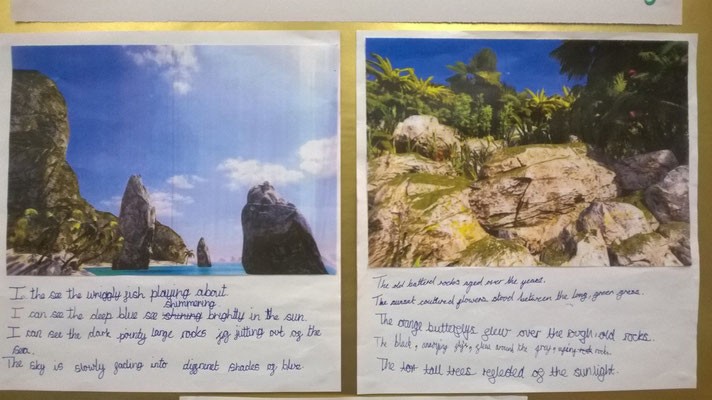 I the see the wriggly fish playing about.
shimmering
I can see the deep blue se shining brightly in the sun.
I can see the dark pointy large rocks jg jutting out of the
sea.
The sky is slowly fading into different shades of blue.
The old battered rocks aged over the years.
The sunset coulered flowers stood between the long, green grass.
The orange butterflys flew over the rough, old rocks.
The black, annoying flys, flew around the grey, rocks.
The tall trees refleded of the sunlight.